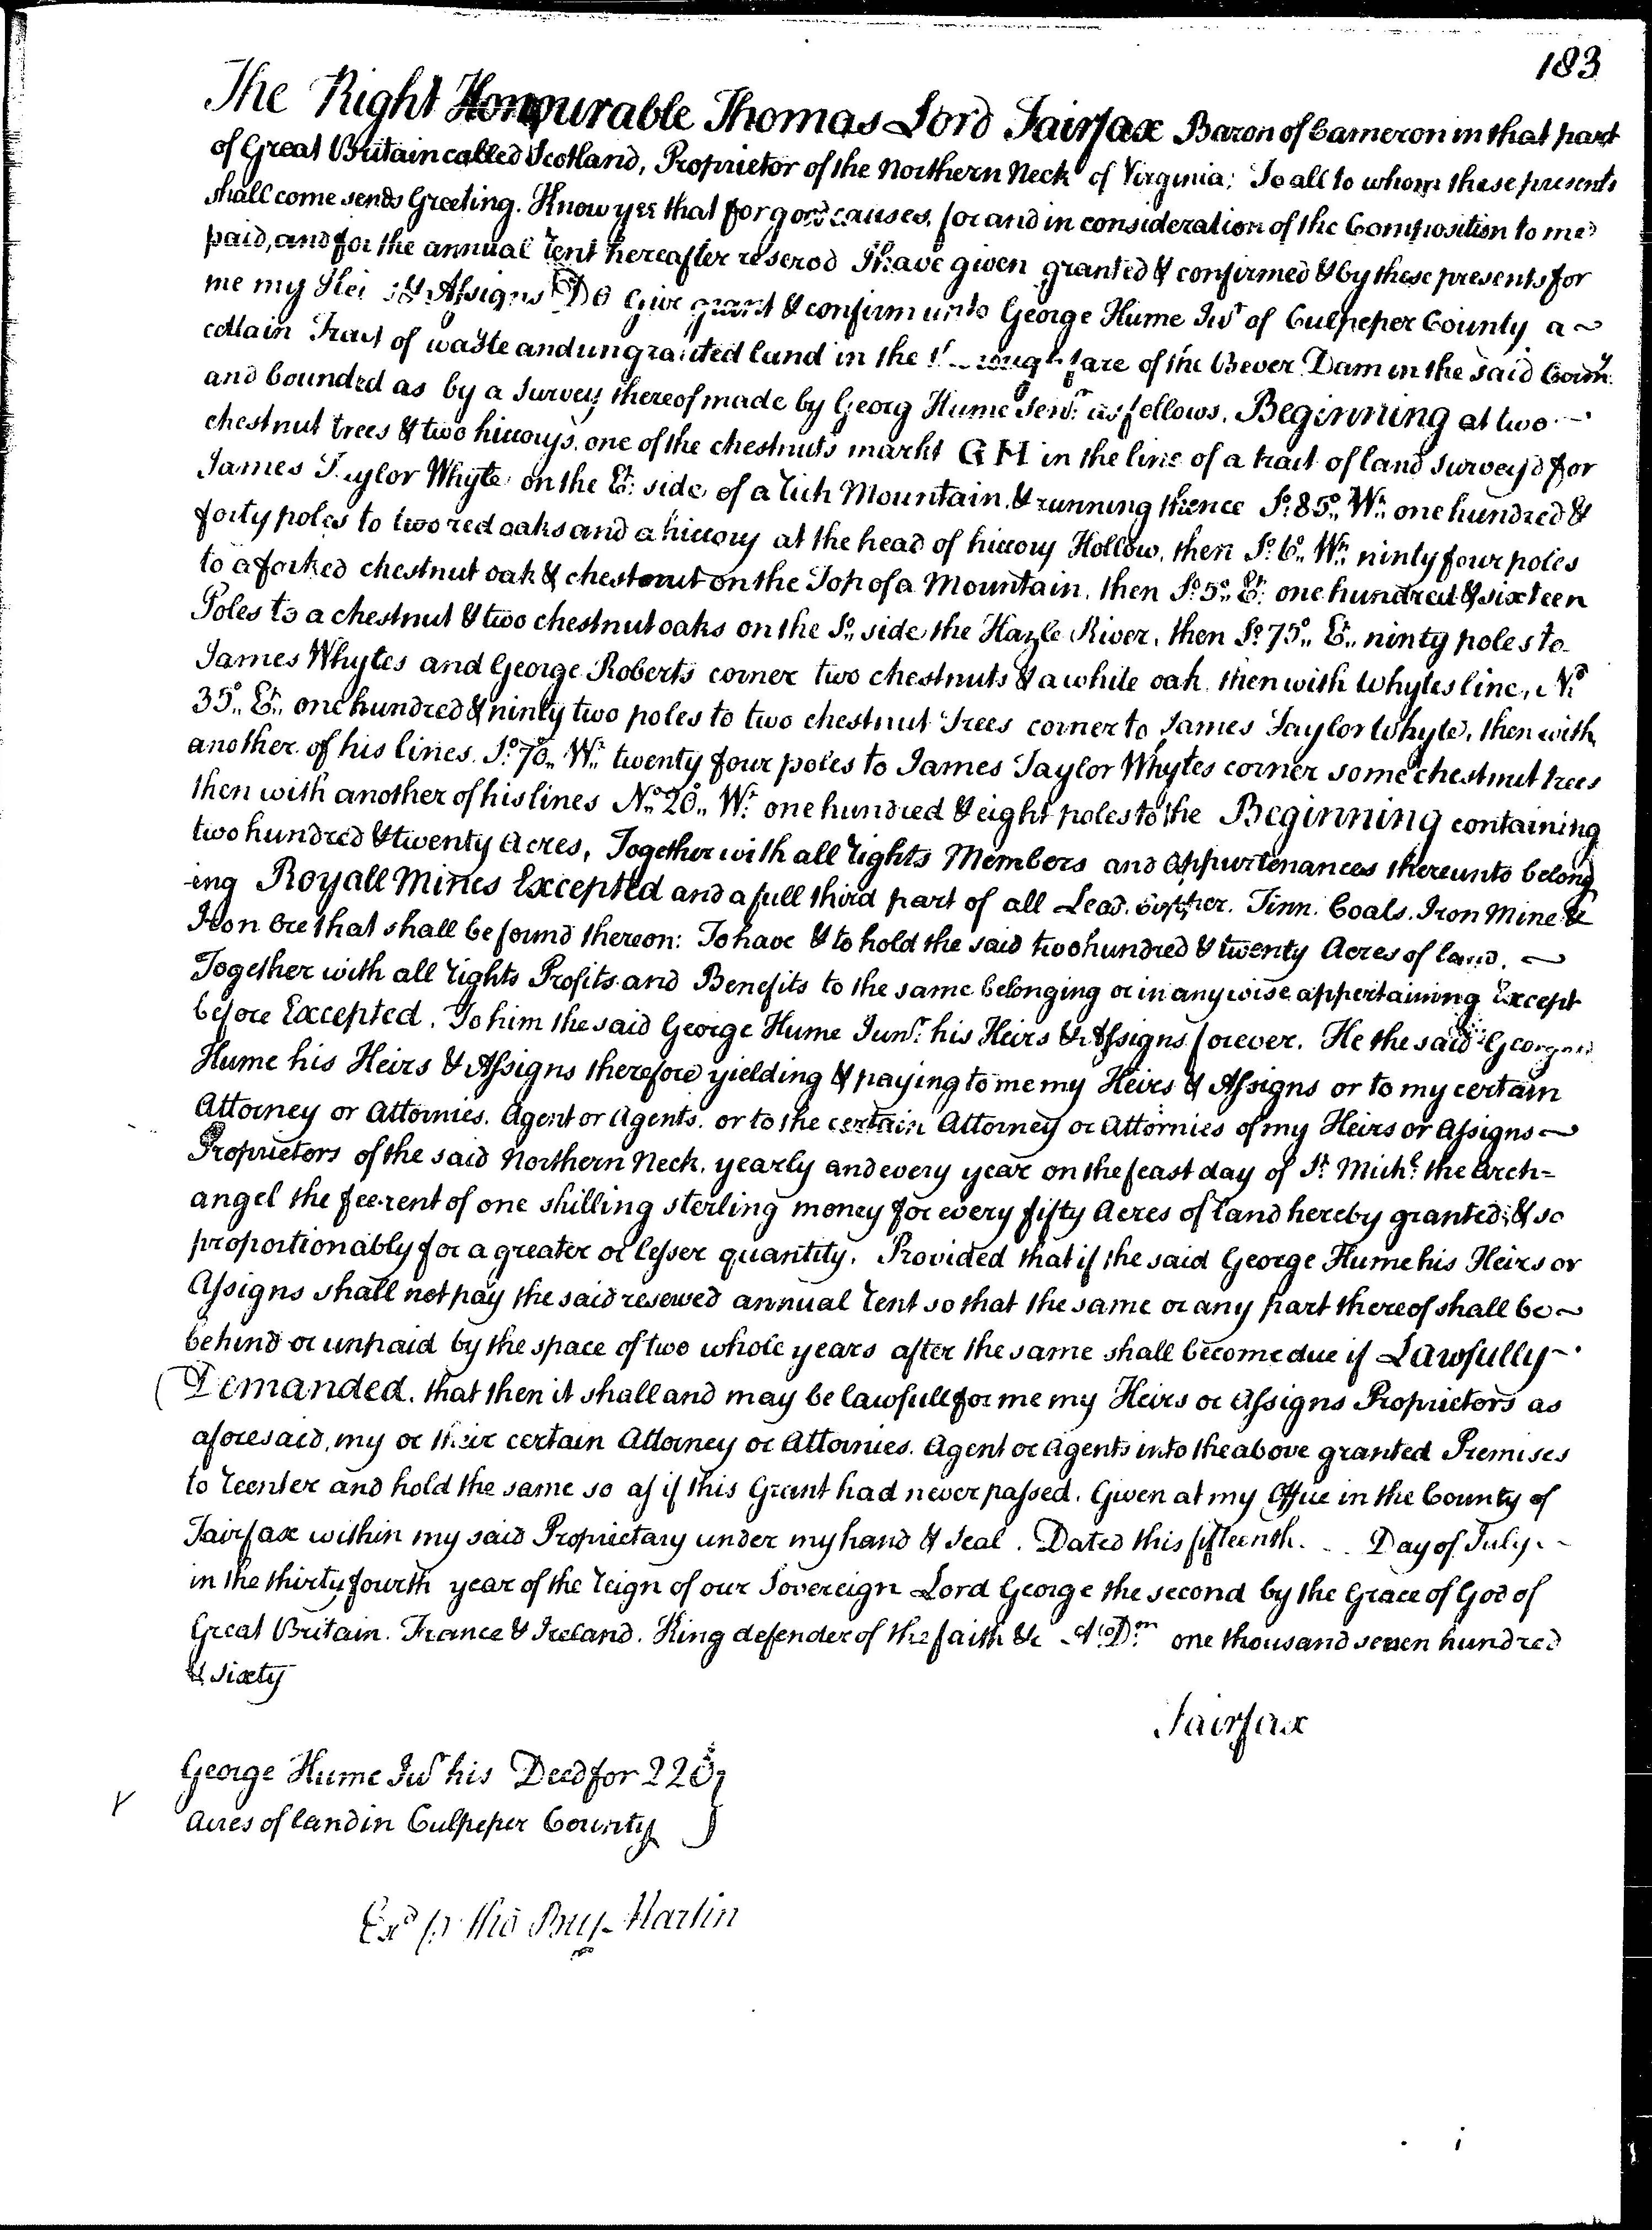 183
The Right Honourable Thomas Lord Fairfax Baron of Cameron in that part
of Great Britain called Scotland, Proprietor of the Northern Neck of Virginia; To all to whom these presents
shall come sends Greeting. Know yee that for good causes, for and in consideration of the Composition to me
paid, and for the annual rent hereafter reservd I have given granted & confirmed & by these presents for
me my Hei s & Assigns Do Give grant & confirm unto George Hume Junr of Culpeper County a ~
certain Tract of waste and ungranted land in the fare of the Bever Dam in the said County.
and bounded as by a Survey thereof made by Georg Hume Senr. as follows, Beginning at two
chestnut trees & two hiccorys, one of the chestnuts markt GH in the line of a tract of land survey'd for
James Taylor Whyte on the Et. side of a rich Mountain, & running thence So. 85° Wt. one hundred &
forty poles to two red oaks and a hiccory at the head of hiccory Hollow, then So. 6° Wt. ninty four poles
to a forked chestnut oak & chestnut on the Top of a Mountain, then So. 5° Et. one hundred & sixteen
Poles to a chestnut & two chestnut oaks on the So. side the Hazle River, then So. 75° Et. ninty poles to
James Whytes and George Roberts corner two chestnuts & a white oak, then with Whytes line, No.
35° Et. one hundred & ninty two poles to two chestnut Trees corner to James Taylor Whyte, then with
another of his lines, So. 70° Wt. twenty four poles to James Taylor Whytes corner some chestnut trees
then with another of his lines No. 20° Wt. one hundred & eight poles to the Beginning containing
two hundred & twenty Acres, Together with all rights Members and Appurtenances thereunto belong
-ing Royall Mines Excepted and a full third part of all Lead, Copper, Tinn, Coals, Iron Mine &
Iron Ore that shall be found thereon: To have & to hold the said two hundred & twenty Acres of land, ~
Together with all rights Profits and Benefits to the same belonging or in any wise appertaining Except
before Excepted. To him the said George Hume Junr. his Heirs & Assigns forever. He the said George
Hume his Heirs & Assigns therefore yielding & paying to me my Heirs & Assigns or to my certain
Attorney or Attornies, Agent or Agents, or to the certain Attorney or Attornies of my Heirs or Assigns ~
Proprietors of the said Northern Neck, yearly and every year on the feast day of St. Michl. the Arch=
angel the fee-rent of one shilling sterling money for every fifty Acres of land hereby granted, & so
proportionably for a greater or lesser quantity. Provided that if the said George Hume his Heirs or
Assigns shall not pay the said reserved annual rent so that the same or any part thereof shall be ~
behind or unpaid by the space of two whole years after the same shall become due if Lawfully
Demanded, that then it shall and may be lawfull for me my Heirs or Assigns Proprietors as
aforesaid, my or their certain Attorney or Attornies, Agent or Agents into the above granted Premises
to reenter and hold the same so as if this Grant had never passed. Given at my Office in the County of
Fairfax within my said Proprietary under my hand & Seal. Dated this fifteenth Day of July
in the thirty fourth year of the reign of our Sovereign Lord George the second by the Grace of God of
Great Britain, France & Ireland, King defender of the faith &c Ao. Dm one thousand seven hundred
& sixty
Fairfax
George Hume Junr his Deed for 220
Acres of land in Culpeper County
Exd Martin